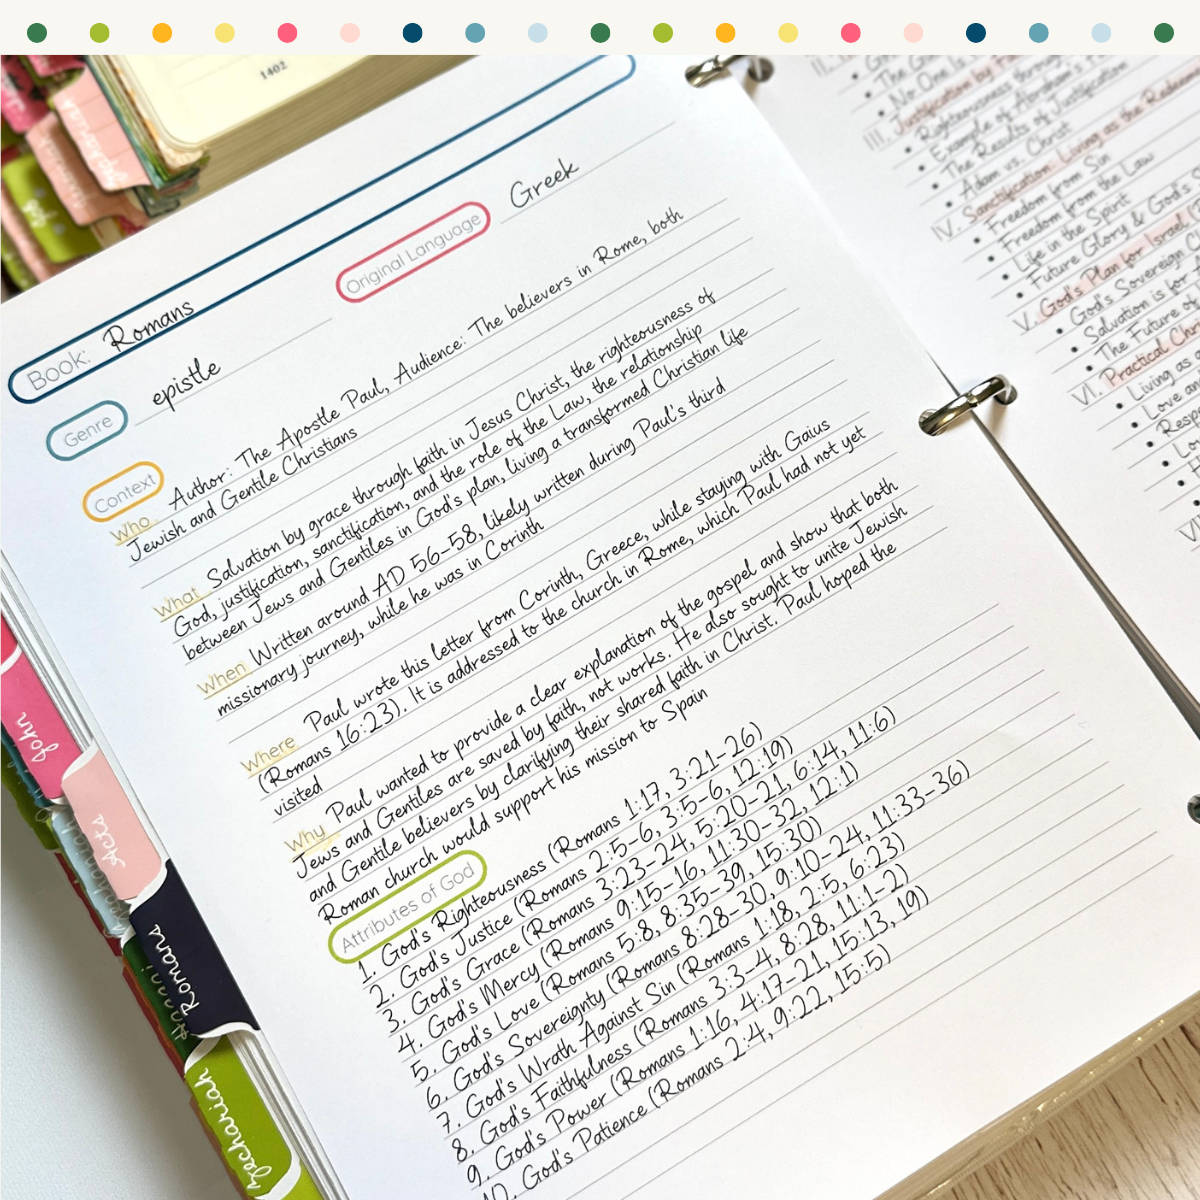 1402
Book: Romans
Genre epistle
Original Language Greek
Context
Who Author: The Apostle Paul, Audience: The believers in Rome, both
Jewish and Gentile Christians
What Salvation by grace through faith in Jesus Christ, the righteousness of
God, justification, sanctification, and the role of the Law, the relationship
between Jews and Gentiles in God's plan, living a transformed Christian life
When Written around AD 56-58, likely written during Paul's third
missionary journey, while he was in Corinth
Where Paul wrote this letter from Corinth, Greece, while staying with Gaius
(Romans 16:23). It is addressed to the church in Rome, which Paul had not yet
visited
Why Paul wanted to provide a clear explanation of the gospel and show that both
Jews and Gentiles are saved by faith, not works. He also sought to unite Jewish
and Gentile believers by clarifying their shared faith in Christ. Paul hoped the
Roman church would support his mission to Spain
Attributes of God
1. God's Righteousness (Romans 1:17, 3:21-26)
2. God's Justice (Romans 2:5-6, 3:5-6, 12:19)
3. God's Grace (Romans 3:23-24, 5:20-21, 6:14, 11:6)
4. God's Mercy (Romans 9:15-16, 11:30-32, 12:1)
5. God's Love (Romans 5:8, 8:35-39, 15:30)
6. God's Sovereignty (Romans 8:28-30, 9:10-24, 11:33-36)
7. God's Wrath Against Sin (Romans 1:18, 2:5, 6:23)
8. God's Faithfulness (Romans 3:3-4, 8:28, 11:1-2)
9. God's Power (Romans 1:16, 4:17-21, 15:13, 19)
10. God's Patience (Romans 2:4, 9:22, 15:5)
Zephaniah
Job
John
Acts
Romans
Haggai
Zechariah
II.
• The
• No One Is
III. Justification by
• Righteousness through
• Example of Abraham's
• The Results of Justification
• Adam vs. Christ
IV. Sanctification: Living as the
• Freedom from Sin
• Freedom from the Law
• Life in the Spirit
• Future Glory & God's
V. God's Plan for Israel
• God's Sovereign
• Salvation is for
• The Future of
VI. Practical
• Living as
• Love